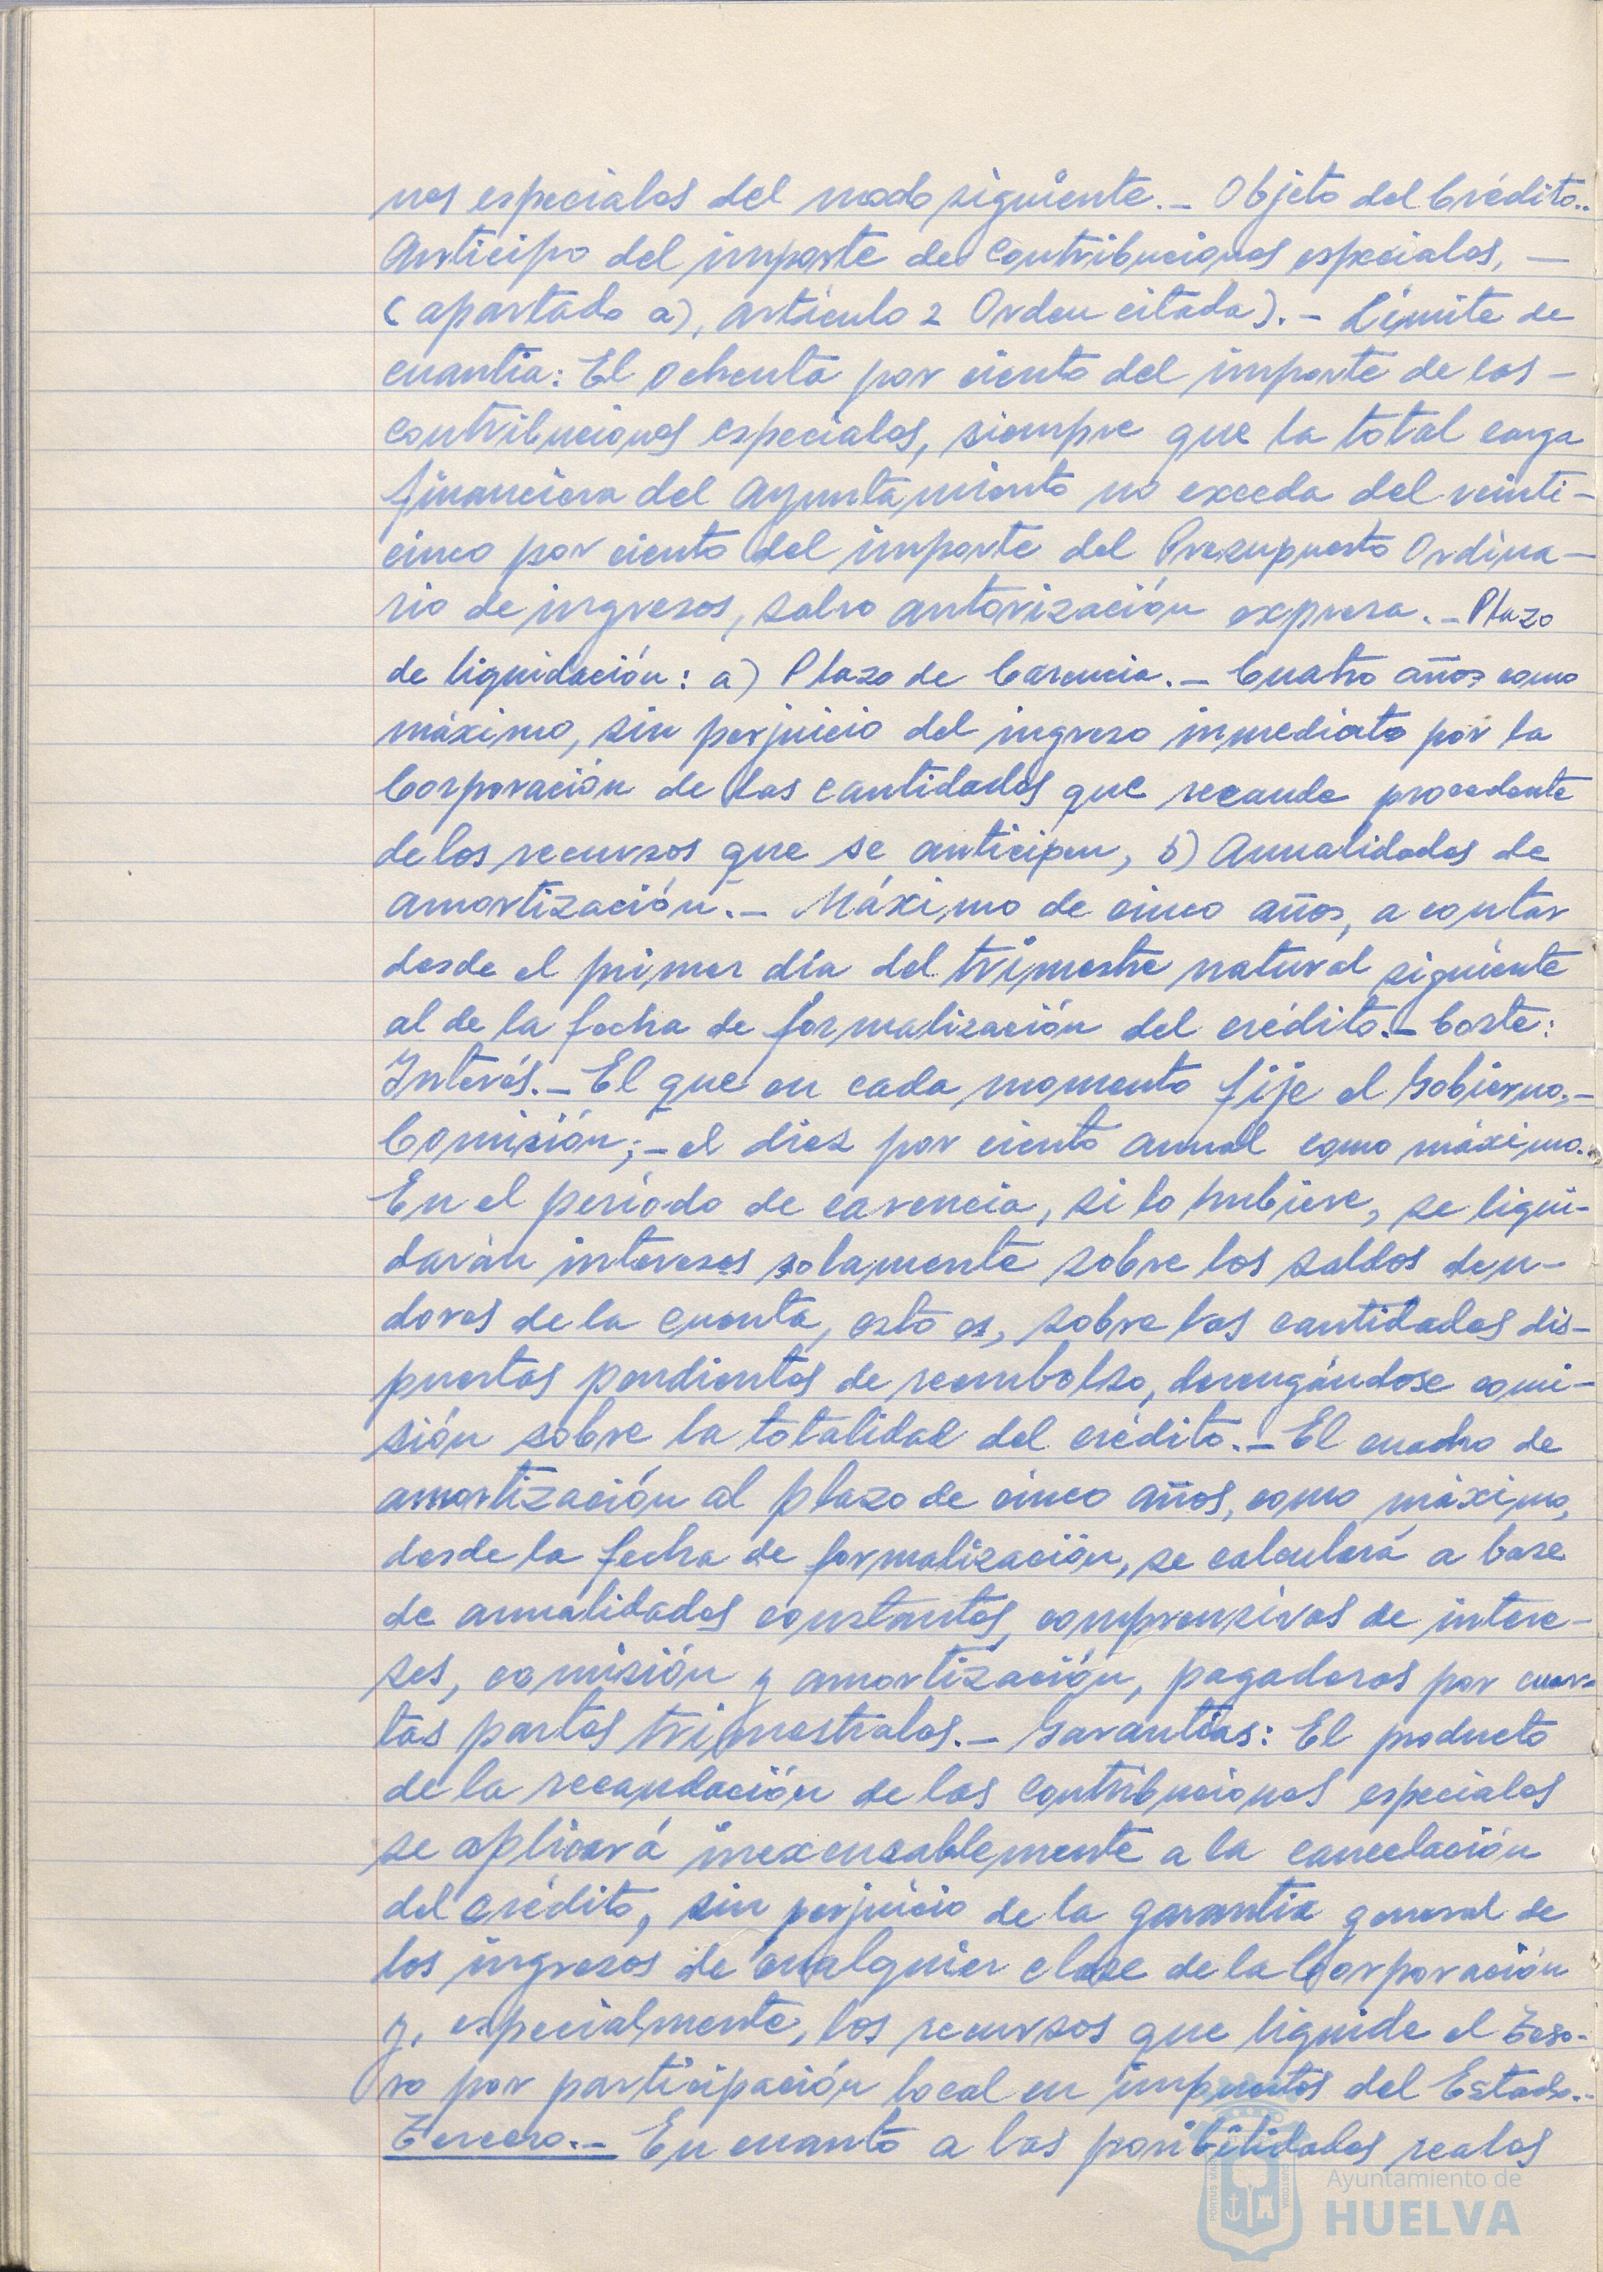 nes especiales del modo siguiente.- Objeto del Crédito..
Anticipo del importe de contribuciones especiales, -
(apartado a), artículo 2 Orden citada).- Límite de
cuantía: El ochenta por ciento del importe de las -
contribuciones especiales, siempre que la total carga
financiera del Ayuntamiento no exceda del veinti-
cinco por ciento del importe del Presupuesto Ordina-
rio de ingresos, salvo autorización expresa.- Plazo
de liquidación: a) Plazo de Carencia.- Cuatro años como
máximo, sin perjuicio del ingreso inmediato por la
Corporación de las cantidades que recaude procedente
de los recursos que se anticipen, b) Anualidades de
amortización.- Máximo de cinco años, a contar
desde el primer día del trimestre natural siguiente
al de la fecha de formalización del crédito.- Coste:
Interés.- El que en cada momento fije el Gobierno.-
Comisión;- el diez por ciento anual como máximo..
En el período de carencia, si lo hubiere, se liqui-
darán intereses solamente sobre los saldos deu-
dores de la cuenta, esto es, sobre las cantidades dis-
puestas pendientes de reembolso, devengándose comi-
sión sobre la totalidad del crédito.- El cuadro de
amortización al plazo de cinco años, como máximo,
desde la fecha de formalización, se calculará a base
de anualidades constantes, comprensivas de intere-
ses, comisión y amortización, pagaderos por cuar-
tas partes trimestrales.- Garantías: El producto
de la recaudación de las contribuciones especiales
se aplicará inexcusablemente a la cancelación
del crédito, sin perjuicio de la garantía general de
los ingresos de cualquier clase de la Corporación
y, especialmente, los recursos que liquide el Teso-
ro por participación local en impuestos del Estado.-
Tercero.- En cuanto a las posibilidades reales
Ayuntamiento de
HUELVA